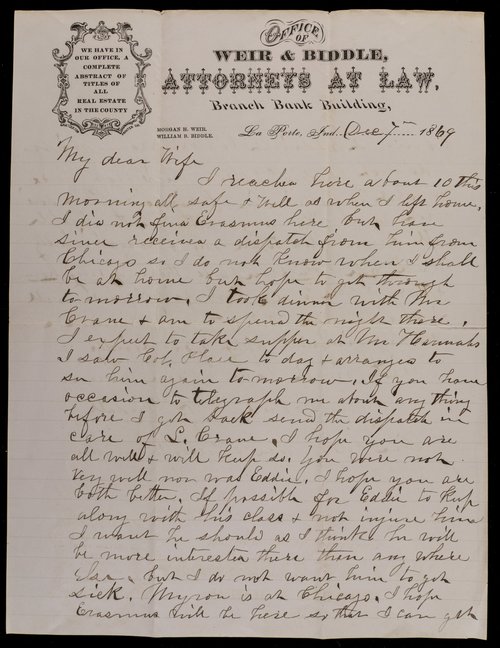 WE HAVE IN
OUR OFFICE, A
COMPLETE
ABSTRACT OF
TITLES OF
ALL
REAL ESTATE
IN THE COUNTY
OFFICE
OF
WEIR & BIDDLE,
ATTORNEYS AT LAW,
Branch Bank Building,
MORGAN H. WEIR.
WILLIAM B. BIDDLE.
La Porte, Ind. Dec 7 1869
My dear Wife
I reached here about 10 this
morning all safe & well as when I left home.
I did not find Erasmus here but have
since received a dispatch from him from
Chicago so I do not know when I shall
be at home but hope to get through
to-morrow. I took dinner with Mr
Crane & am to spend the night there.
I expect to take supper at Mr Hannahs
I saw Col. Place to day & arranged to
see him again to-morrow. If you have
occasion to telegraph me about any thing
before I get back send the dispatch in
care of L. Crane. I hope you are
all well & will keep so. You were not
very well nor was Eddie. I hope you are
both better. If possible for Eddie to keep
along with his class & not injure him
I want he should as I think he will
be more interested there than any where
else. but I do not want him to get
sick. Myron is at Chicago. I hope
Erasmus will be here so that I can get